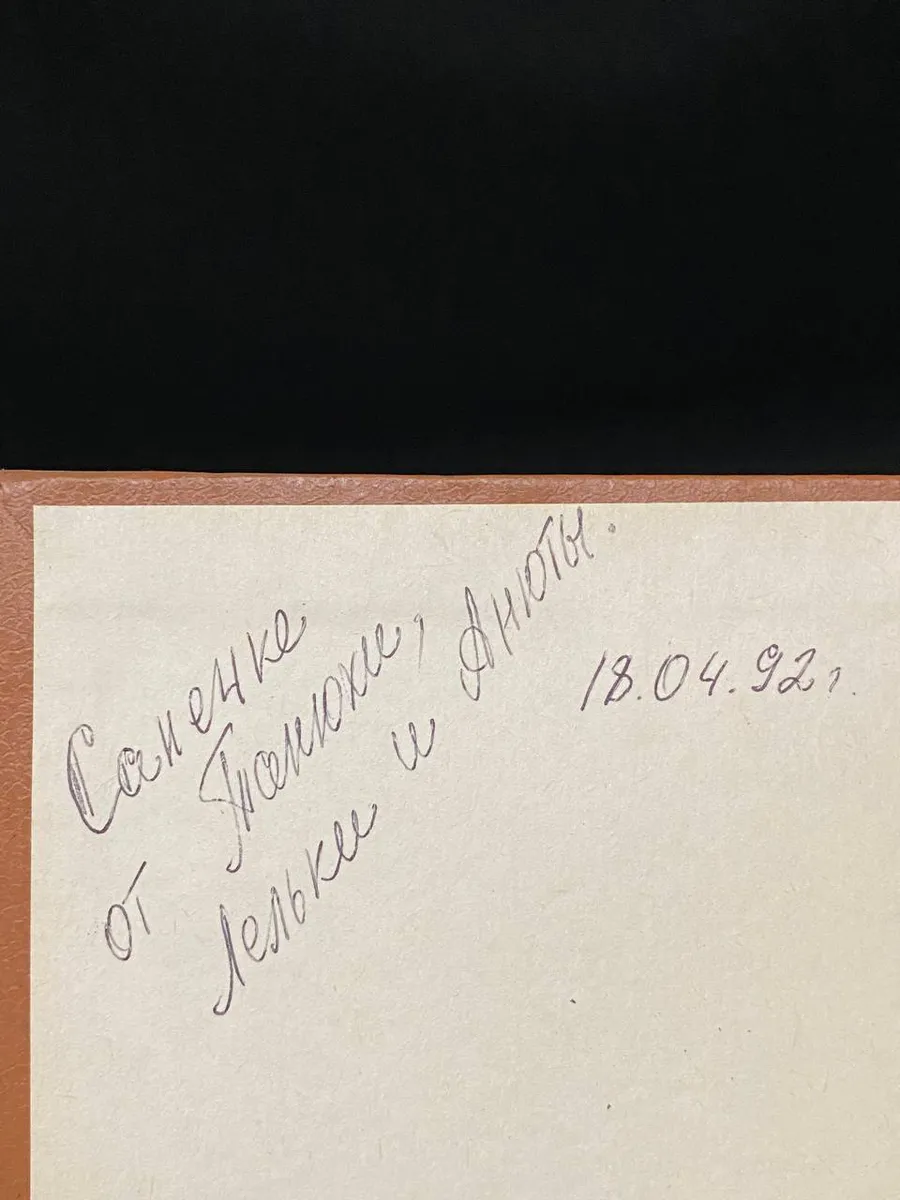 Санечке
от Танюхи,
Лельки и Анюты.
18.04.92 г.